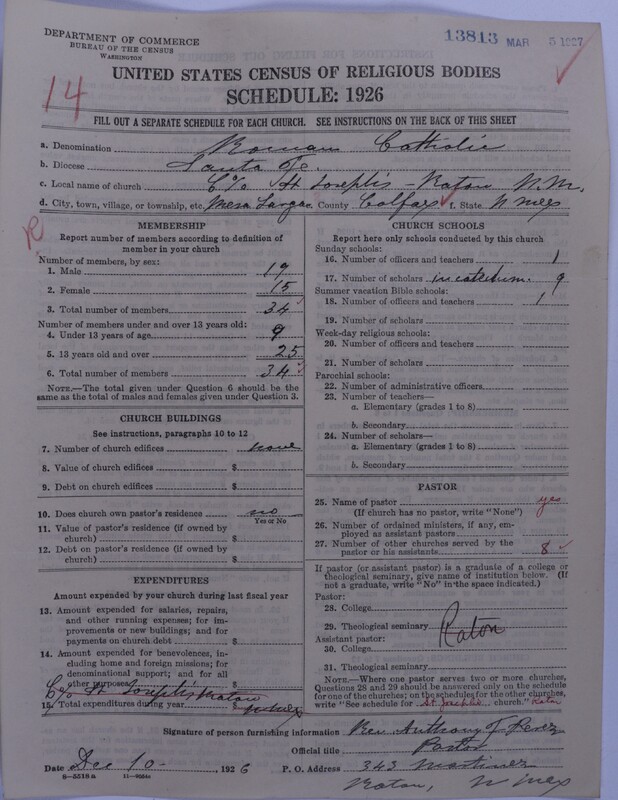 DEPARTMENT OF COMMERCE
BUREAU OF THE CENSUS
WASHINGTON
13813 MAR 5 1927
UNITED STATES CENSUS OF RELIGIOUS BODIES
SCHEDULE: 1926
14
FILL OUT A SEPARATE SCHEDULE FOR EACH CHURCH. SEE INSTRUCTIONS ON THE BACK OF THIS SHEET
a. Denomination Roman Catholic
b. Diocese Santa Fe.
c. Local name of church C/o St Joseph's - Raton N.M.
d. City, town, village, or township, etc. Mesa Larga County Colfax f. State N Mex
R
MEMBERSHIP
Report number of members according to definition of
member in your church
Number of members, by sex:
1. Male 19
2. Female 15
3. Total number of members 34
Number of members under and over 13 years old:
4. Under 13 years of age 9
5. 13 years old and over 25
6. Total number of members 34
NOTE.—The total given under Question 6 should be
the same as the total of males and females given under Question 3.
CHURCH BUILDINGS
See instructions, paragraphs 10 to 12
7. Number of church edifices none
8. Value of church edifices $
9. Debt on church edifices $
10. Does church own pastor's residence? no
Yes or No
11. Value of pastor's residence (if owned by
church) $
12. Debt on pastor's residence (if owned by
church) $
EXPENDITURES
Amount expended by your church during last fiscal year
13. Amount expended for salaries, repairs,
and other running expenses; for im-
provements or new buildings; and for
payments on church debt $
14. Amount expended for benevolences, in-
cluding home and foreign missions; for
denominational support; and for all
other purposes $
C/o St Joseph's Raton
15. Total expenditures during year $ N Mex
CHURCH SCHOOLS
Report here only schools conducted by this church
Sunday schools:
16. Number of officers and teachers 1
17. Number of scholars in catechism. 9
Summer vacation Bible schools:
18. Number of officers and teachers 1
19. Number of scholars
Week-day religious schools:
20. Number of officers and teachers
21. Number of scholars
Parochial schools:
22. Number of administrative officers
23. Number of teachers—
a. Elementary (grades 1 to 8)
b. Secondary
24. Number of scholars—
a. Elementary (grades 1 to 8)
b. Secondary
PASTOR
25. Name of pastor yes
(If church has no pastor, write "None")
26. Number of ordained ministers, if any, em-
ployed as assistant pastors
27. Number of other churches served by the
pastor or his assistants 8
If pastor (or assistant pastor) is a graduate of a college or
theological seminary, give name of institution below. (If
not a graduate, write "No" in the space indicated.)
Pastor:
28. College
29. Theological seminary Raton
Assistant pastor:
30. College
31. Theological seminary
NOTE.—Where one pastor serves two or more churches,
Questions 28 and 29 should be answered only on the schedule
for one of the churches; on the schedules for the other churches,
write "See schedule for St Joseph's church." Raton
Signature of person furnishing information Rev Anthony J. Perez
Official title Pastor
Date Dec 10 - 1926 P. O. Address 343 Martinez
8—551BA 11—9564a
Raton, N Mex